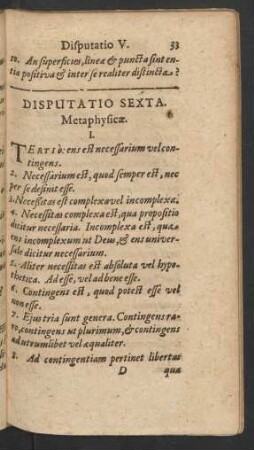 Disputatio V. 53
10. An superficies, lineæ & puncta sint en-
tia positiva & inter se realiter distincta?
DISPUTATIO SEXTA.
Metaphysicæ.
I.
TERTIÒ: ens est necessarium vel con-
tingens.
2. Necessarium est, quod semper est, nec
per se desinit esse.
3. Necessitas est complexa vel incomplexa.
4. Necessitas complexa est, qua propositio
dicitur necessaria. Incomplexa est, qua
ens incomplexum ut Deus, & ens univer-
sale dicitur necessarium.
5. Aliter necessitas est absoluta vel hypo-
thetica. Ad esse, vel ad bene esse.
6. Contingens est, quod potest esse vel
non esse.
7. Ejus tria sunt genera. Contingens ra-
ro, contingens ut plurimum, & contingens
ad utrumlibet vel æqualiter.
8. Ad contingentiam pertinet libertas
D quæ